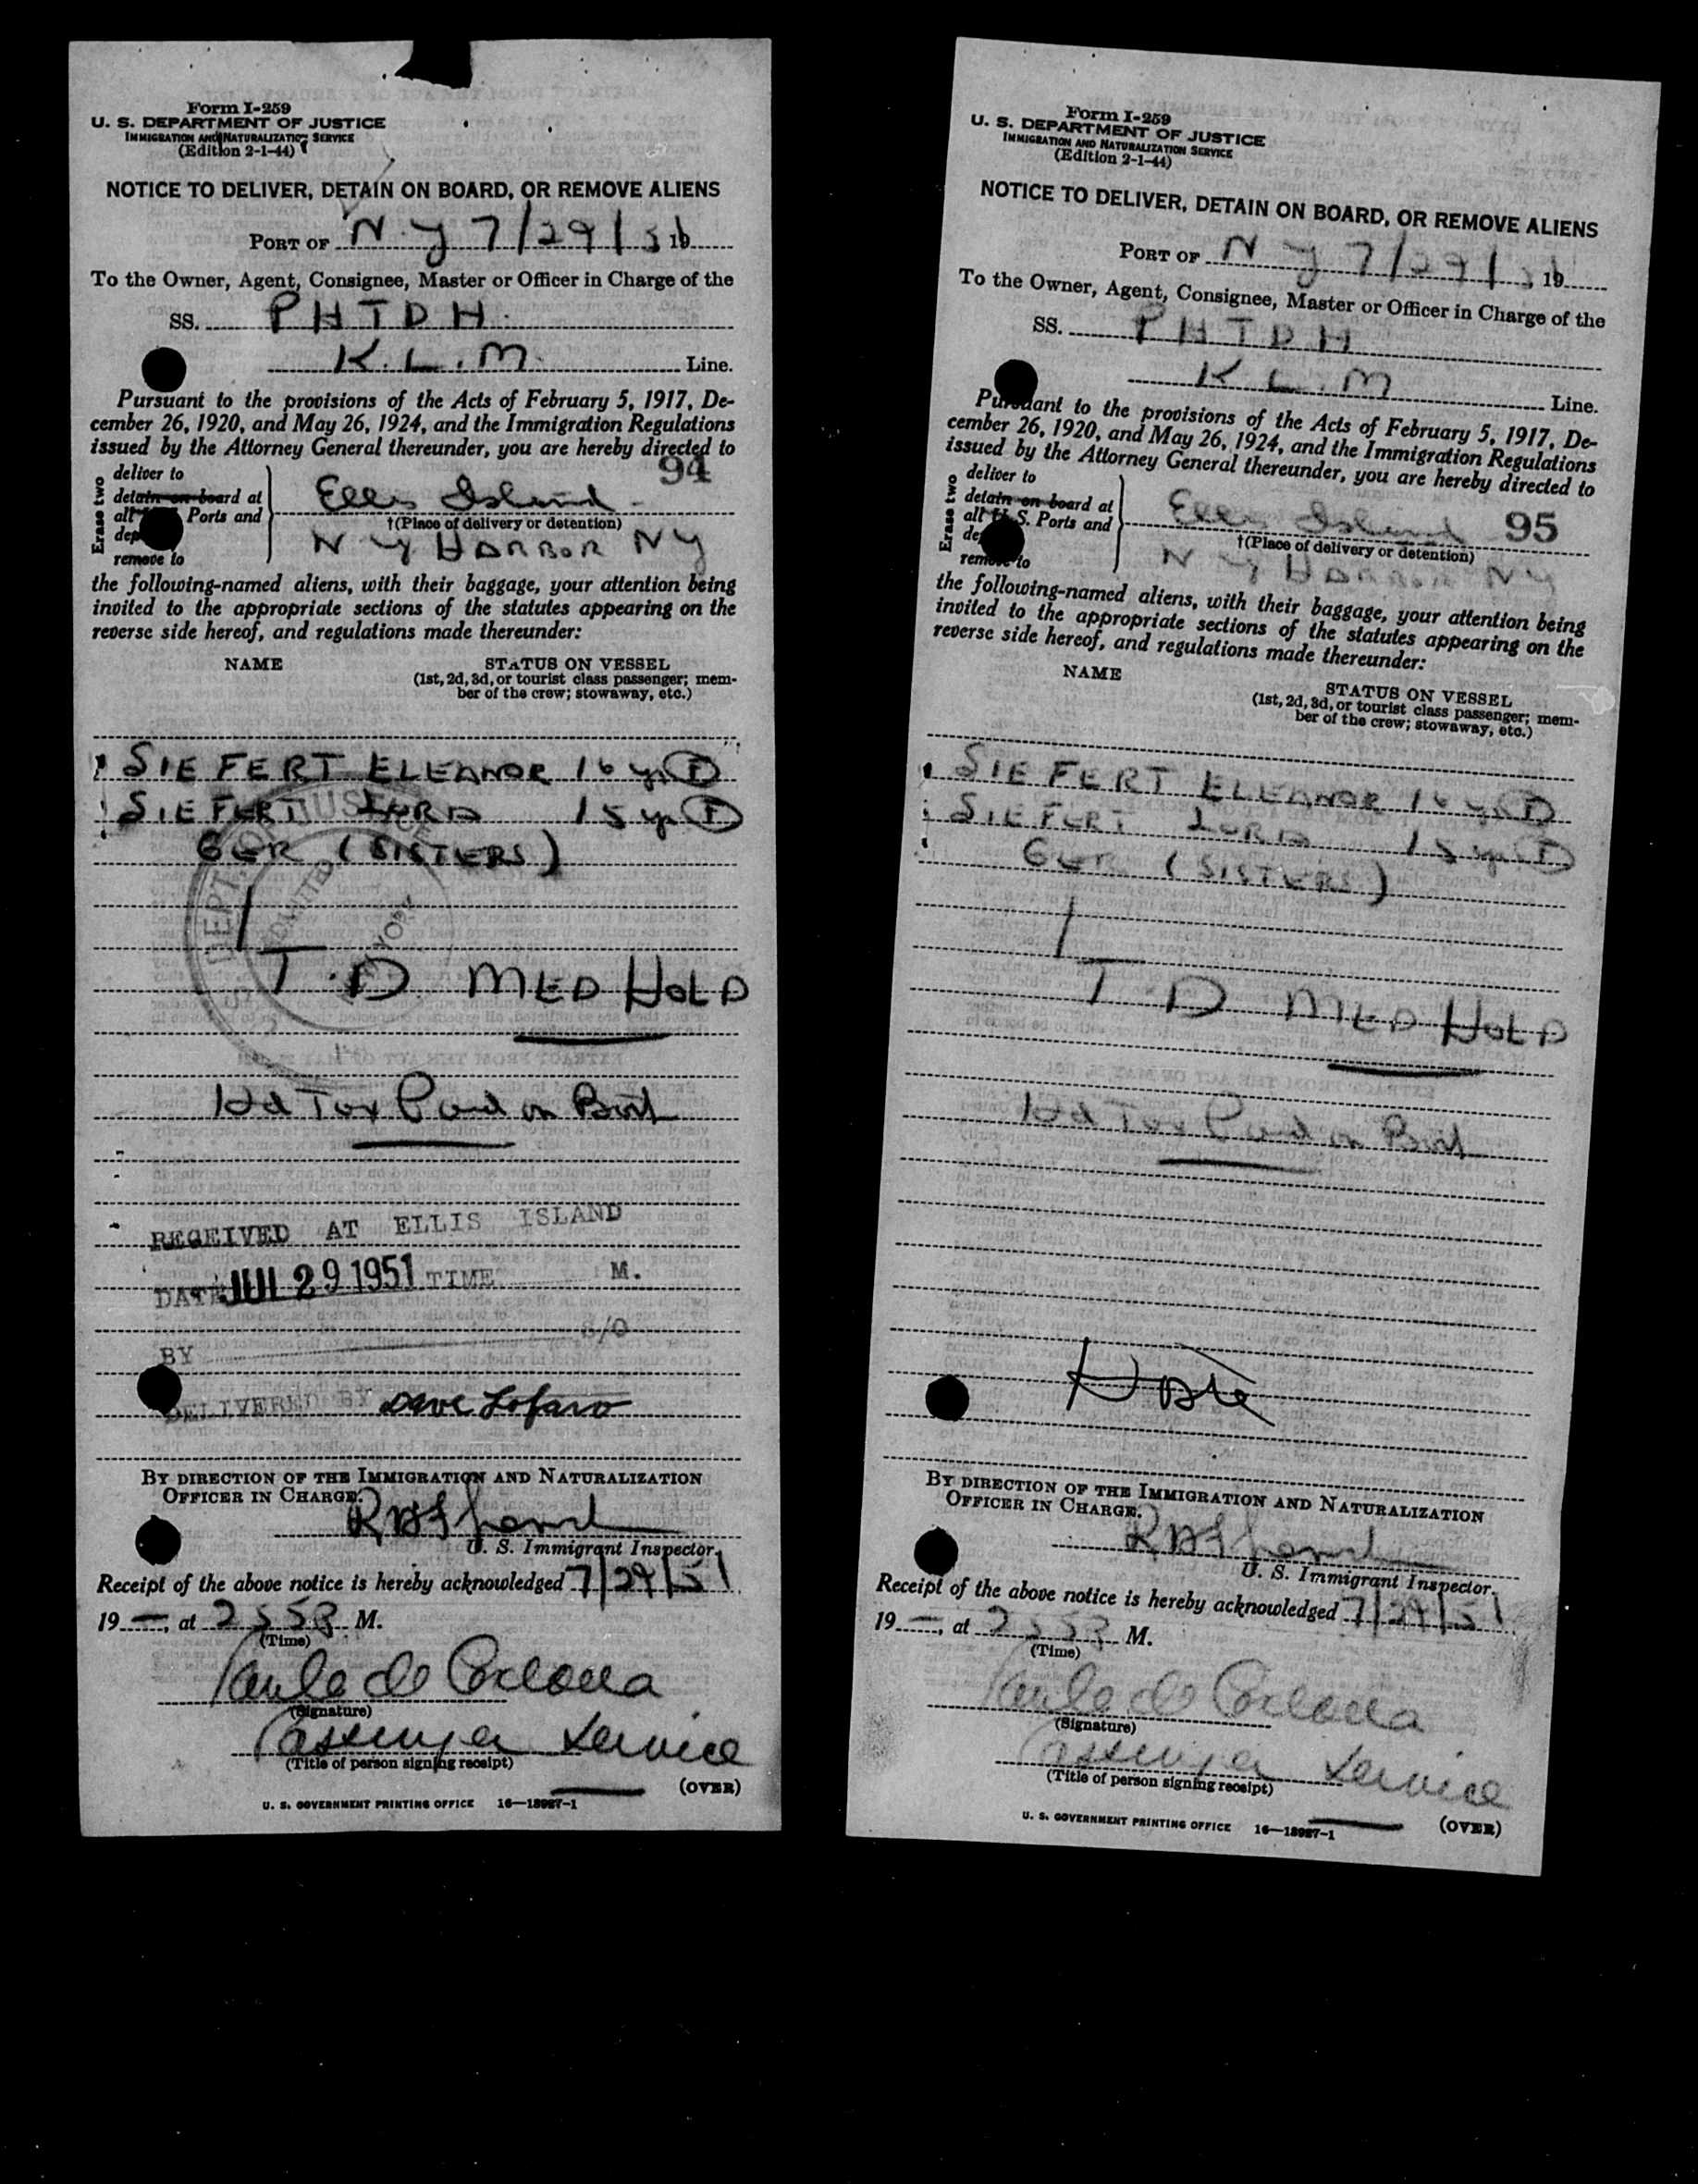 Form I-259
U. S. DEPARTMENT OF JUSTICE
IMMIGRATION AND NATURALIZATION SERVICE
(Edition 2-1-44)
NOTICE TO DELIVER, DETAIN ON BOARD, OR REMOVE ALIENS
PORT OF N.Y 7/29/51 19
To the Owner, Agent, Consignee, Master or Officer in Charge of the
SS. PHTDH
K.L.M. Line.
Pursuant to the provisions of the Acts of February 5, 1917, De-
cember 26, 1920, and May 26, 1924, and the Immigration Regulations
issued by the Attorney General thereunder, you are hereby directed to
94
Erase two
deliver to
detain on board at
all Ports and
remove to
Ellis Island
†(Place of delivery or detention)
N Y HARBOR NY
the following-named aliens, with their baggage, your attention being
invited to the appropriate sections of the statutes appearing on the
reverse side hereof, and regulations made thereunder:
NAME STATUS ON VESSEL
(1st, 2d, 3d, or tourist class passenger; mem-
ber of the crew; stowaway, etc.)
SIEFERT ELEANOR 16 yr F
SIEFERT 15 yr F
GER (SISTERS)
T.D MED HOLD
Hd Tax Paid on
RECEIVED AT ELLIS ISLAND
DATE JUL 29 1951 TIME M.
BY
DELIVERED BY Dave Lofaro
BY DIRECTION OF THE IMMIGRATION AND NATURALIZATION
OFFICER IN CHARGE.
U. S. Immigrant Inspector.
Receipt of the above notice is hereby acknowledged 7/29/51
19—, at M.
(Time)
(Signature)
Passenger Service
(Title of person signing receipt)
(OVER)
U. S. GOVERNMENT PRINTING OFFICE 16—18987-1
Form I-259
U. S. DEPARTMENT OF JUSTICE
IMMIGRATION AND NATURALIZATION SERVICE
(Edition 2-1-44)
NOTICE TO DELIVER, DETAIN ON BOARD, OR REMOVE ALIENS
PORT OF N Y 7/29/51 19
To the Owner, Agent, Consignee, Master or Officer in Charge of the
SS. PHTDH
K L.M Line.
Pursuant to the provisions of the Acts of February 5, 1917, De-
cember 26, 1920, and May 26, 1924, and the Immigration Regulations
issued by the Attorney General thereunder, you are hereby directed to
Erase two
deliver to
detain on board at
all U.S. Ports and
remove to
Ellis Island 95
†(Place of delivery or detention)
N Y HARBOR NY
the following-named aliens, with their baggage, your attention being
invited to the appropriate sections of the statutes appearing on the
reverse side hereof, and regulations made thereunder:
NAME STATUS ON VESSEL
(1st, 2d, 3d, or tourist class passenger; mem-
ber of the crew; stowaway, etc.)
SIEFERT ELEANOR 16 yr F
SIEFERT 15 yr F
GER (SISTERS)
T.D MED HOLD
Hd Tax Paid on
BY DIRECTION OF THE IMMIGRATION AND NATURALIZATION
OFFICER IN CHARGE.
U. S. Immigrant Inspector.
Receipt of the above notice is hereby acknowledged 7/29/51
19—, at M.
(Time)
(Signature)
Passenger Service
(Title of person signing receipt)
(OVER)
U. S. GOVERNMENT PRINTING OFFICE 16—18987-1